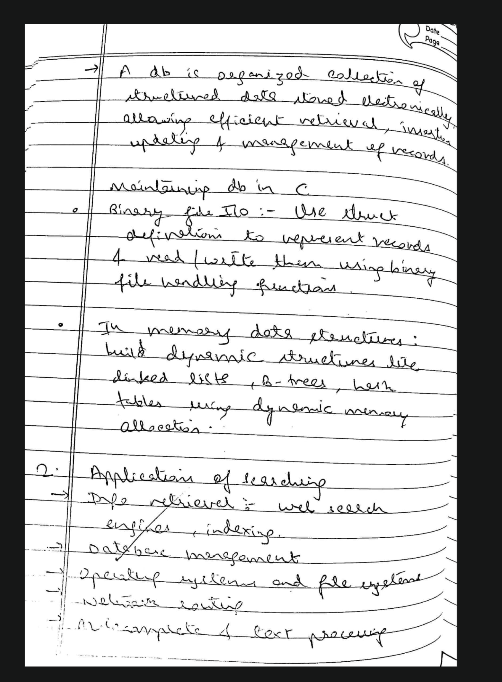 Date
Page
→ A db is organized collection of
structured data stored electronically
allowing efficient retrieval, insertion
updating & management of records.
Maintaining db in C
• Binary file I/O :- Use struct
definations to represent records
& read/write them using binary
file handling functions.
• In memory data structures:
build dynamic structures like
linked lists, B-trees, hash
tables using dynamic memory
allocation.
2. Applications of searching
→ Info retrieval :- web search
engines, indexing.
→ Database management
→ Operating systems and file systems
→ Network routing
→ & text processing